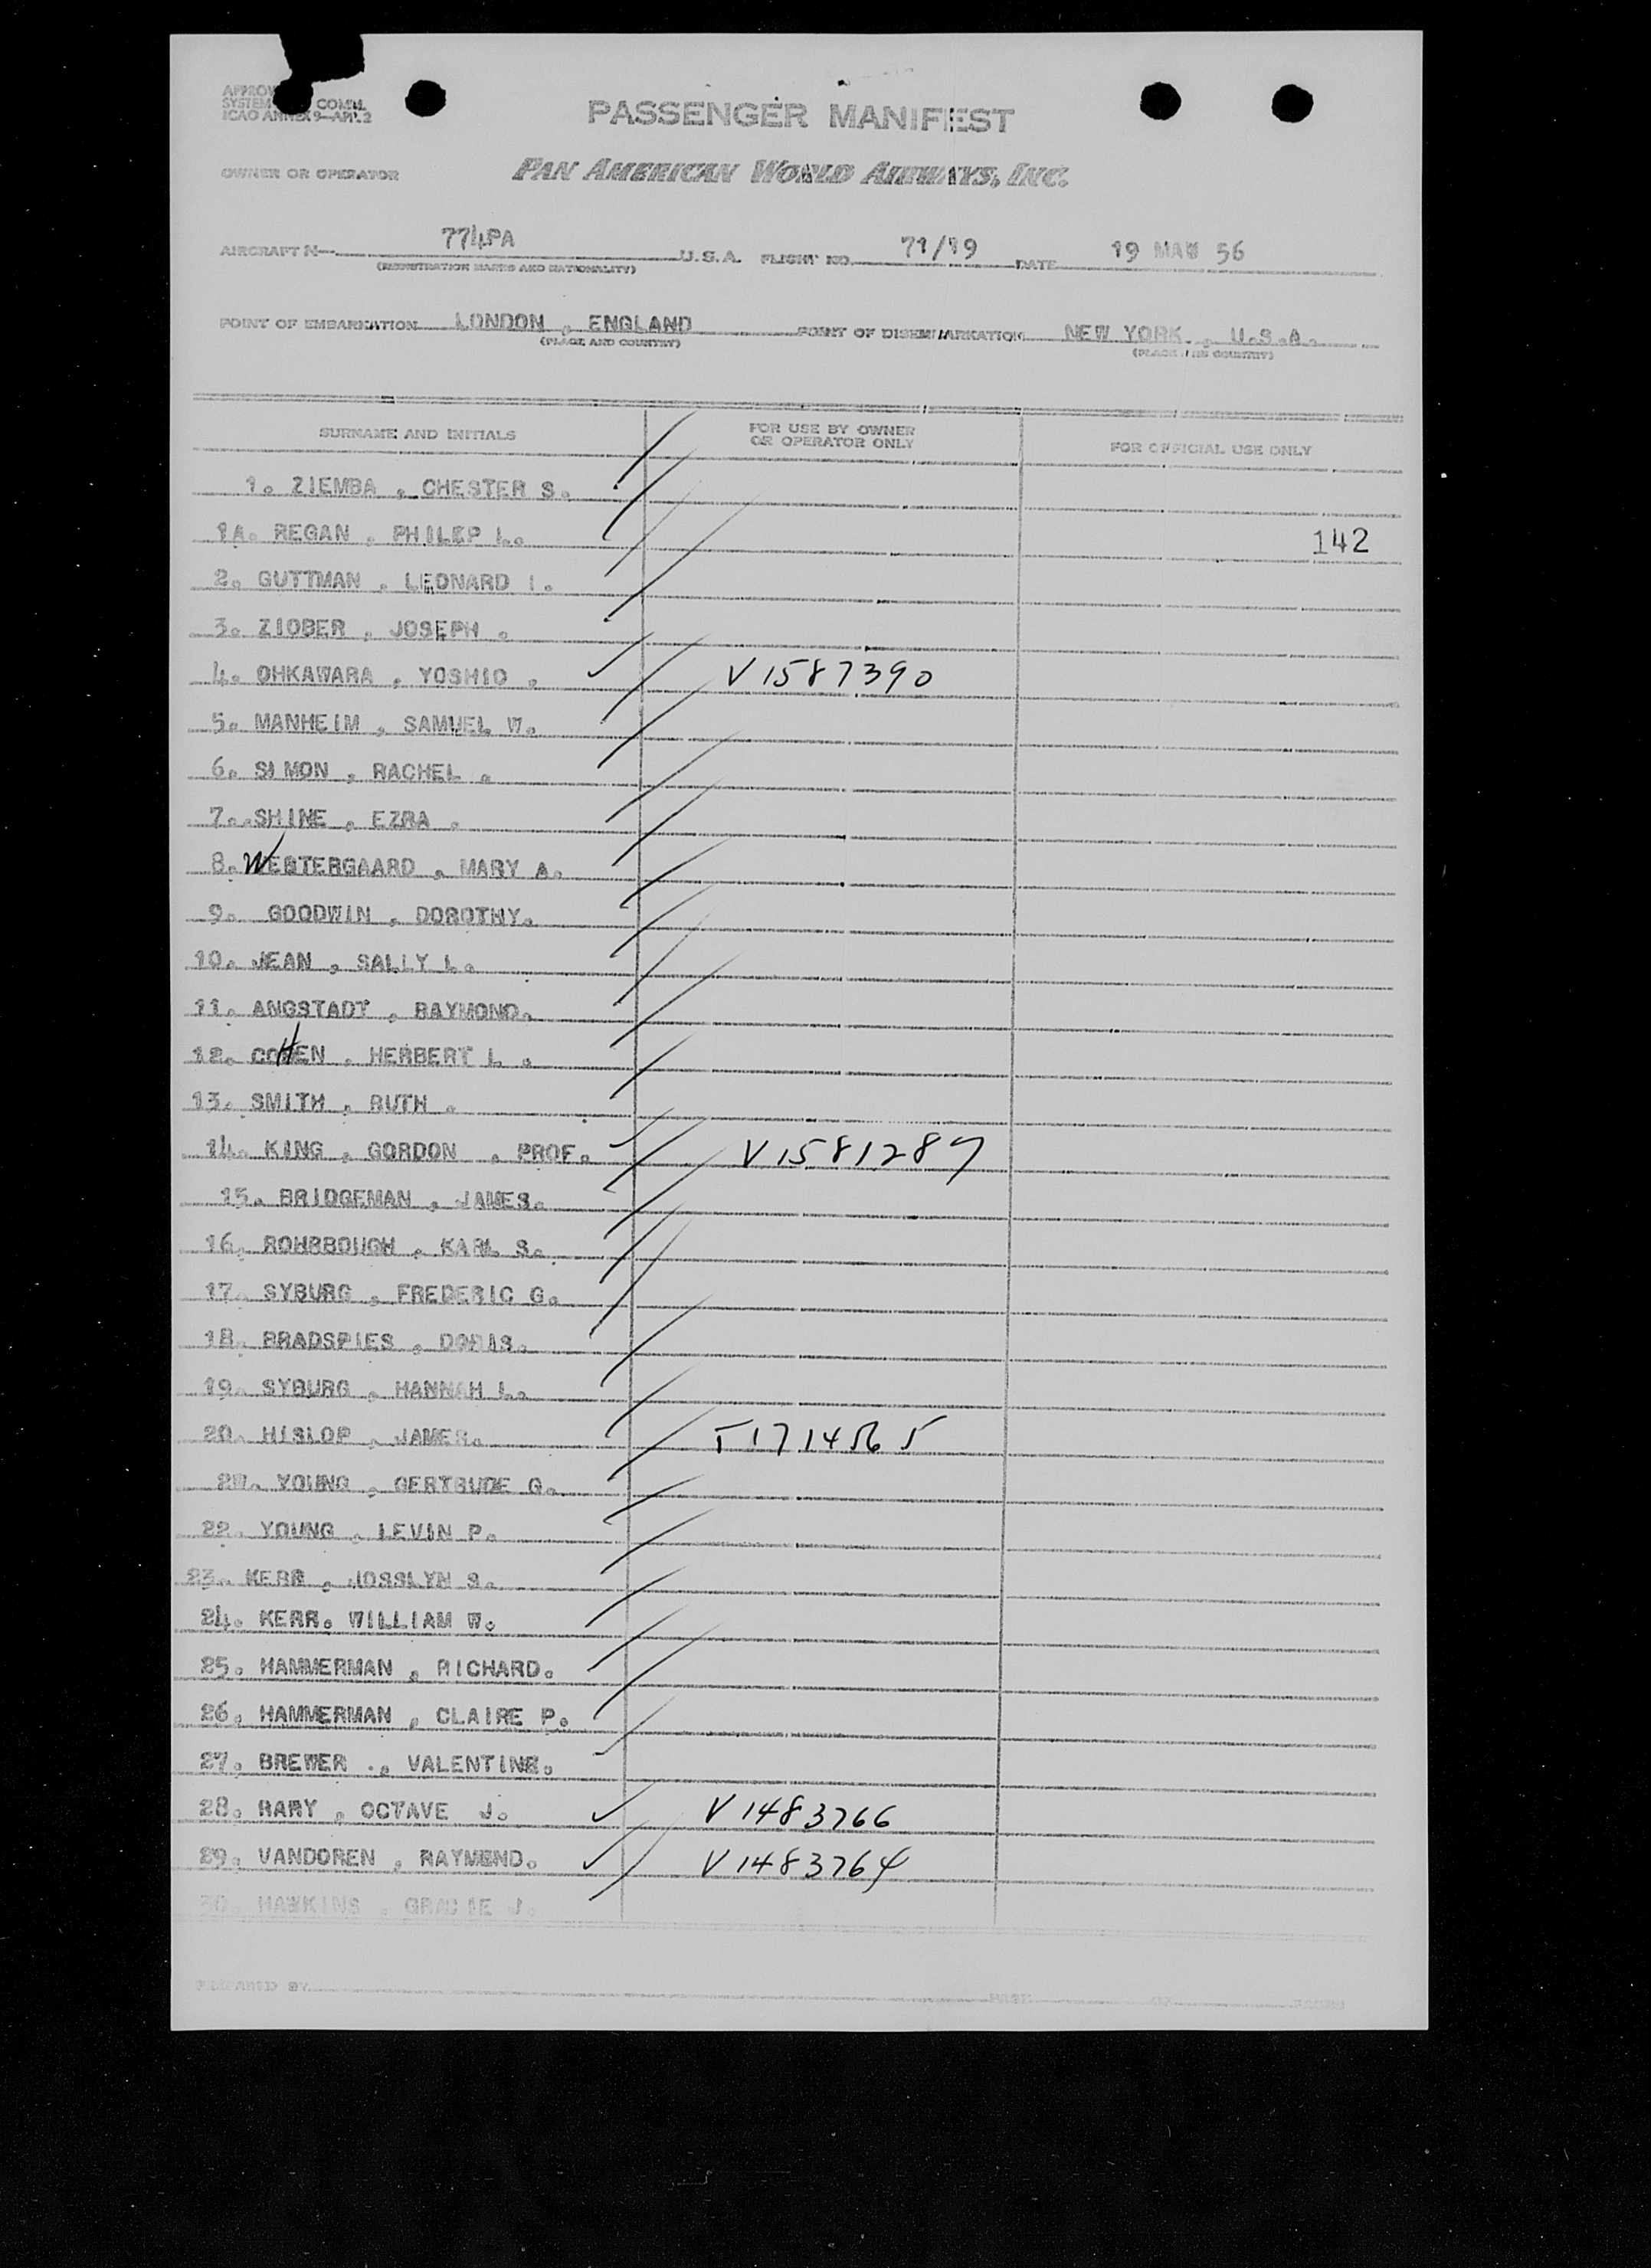 APPROV
SYSTEM COMM.
ICAO ANNEX 9—APP. 2
PASSENGER MANIFEST
OWNER OR OPERATOR
PAN AMERICAN WORLD AIRWAYS, INC.
AIRCRAFT N— 774PA U.S.A. FLIGHT NO. 71/19 DATE 19 MAY 56
(REGISTRATION MARKS AND NATIONALITY)
POINT OF EMBARKATION LONDON , ENGLAND POINT OF DISEMBARKATION NEW YORK , U.S.A.
(PLACE AND COUNTRY) (PLACE AND COUNTRY)
SURNAME AND INITIALS FOR USE BY OWNER OR OPERATOR ONLY FOR OFFICIAL USE ONLY
1. ZIEMBA , CHESTER S.
1A. REGAN , PHILEP L. 142
2. GUTTMAN , LEONARD I.
3. ZIOBER , JOSEPH .
4. OHKAWARA , YOSHIO . V1587390
5. MANHEIM , SAMUEL W.
6. SIMON , RACHEL .
7. SHINE , EZRA .
8. WESTERGAARD , MARY A.
9. GOODWIN , DOROTHY.
10. JEAN , SALLY L.
11. ANGSTADT , RAYMOND.
12. COHEN , HERBERT L .
13. SMITH , RUTH .
14. KING , GORDON , PROF. V1581287
15. BRIDGEMAN , JAMES.
16. ROHRBOUGH , KARL S.
17. SYBURG , FREDERIC G.
18. BRADSPIES , DORIS.
19. SYBURG , HANNAH L.
20. HISLOP , JAMES. T1714565
YOUNG , GERTRUDE G.
22. YOUNG , LEVIN P.
23. KERR , JOSSLYN S.
24. KERR. WILLIAM W.
25. HAMMERMAN , RICHARD.
26. HAMMERMAN , CLAIRE P.
27. BREWER ., VALENTINE.
28. RAMY , OCTAVE J. V1483766
29. VANDOREN , RAYMOND. V1483764
30. HAWKINS , GRACIE J.
PREPARED BY PAGE OF PAGES